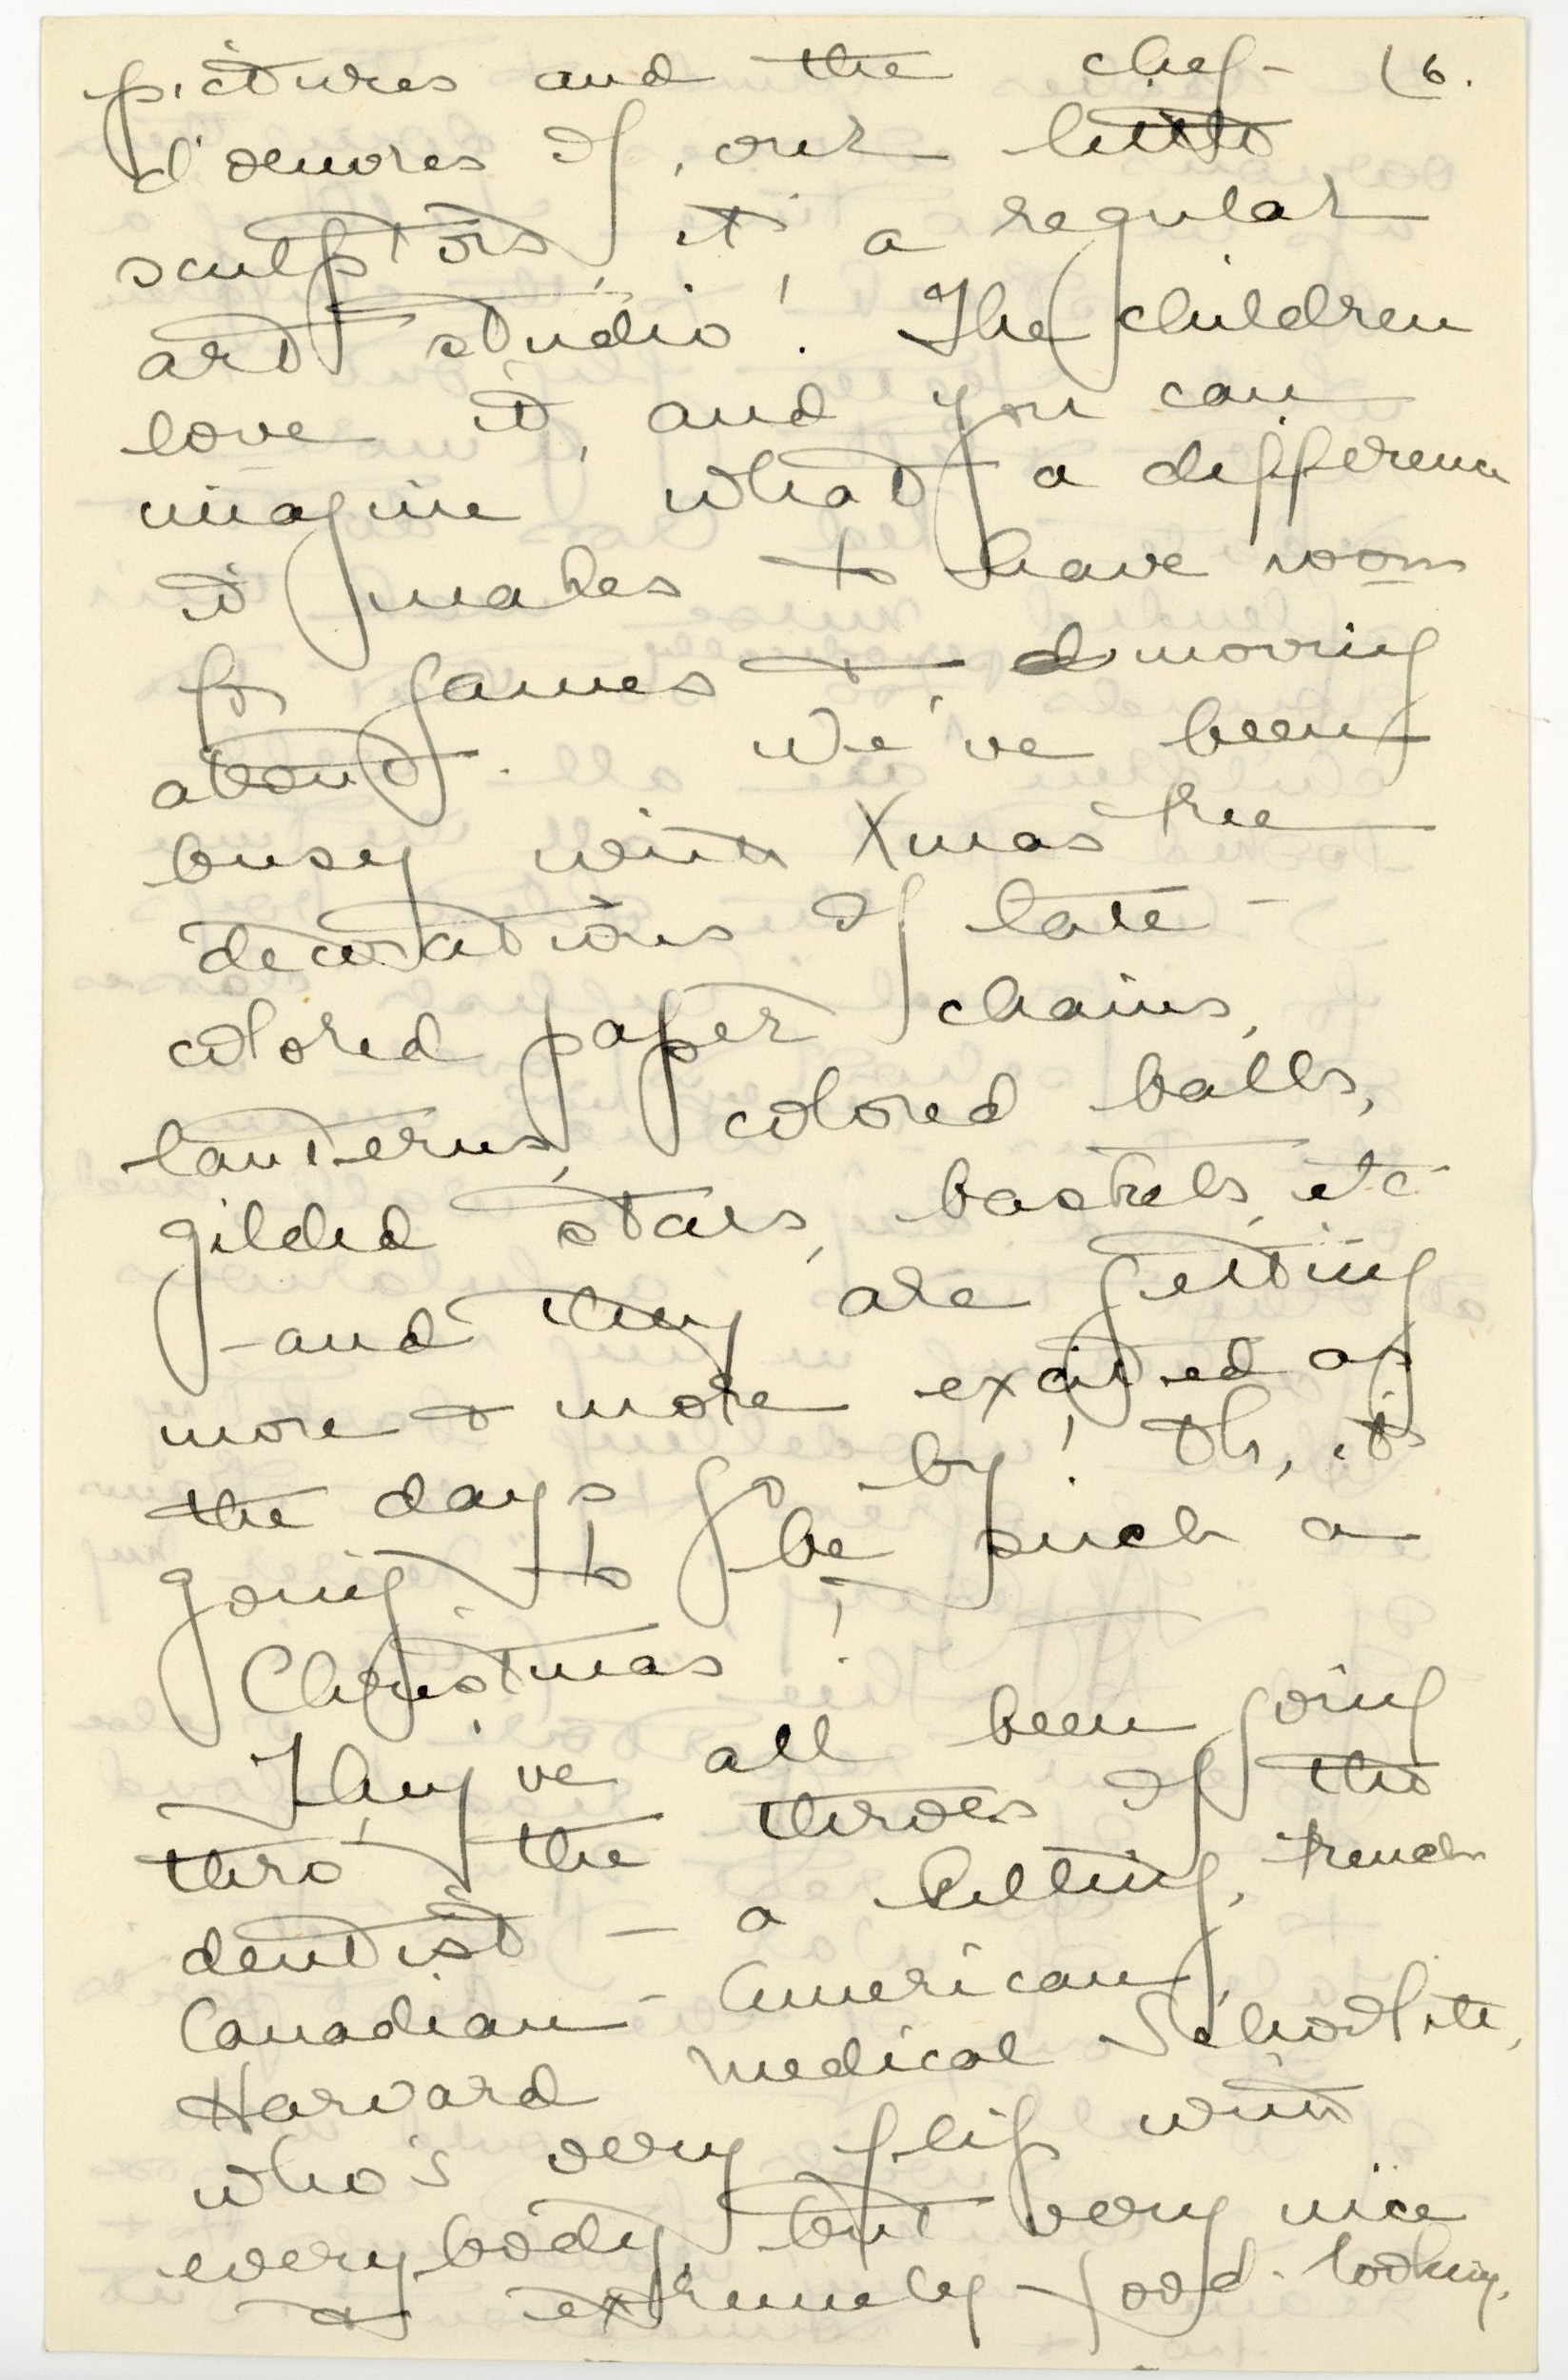 pictures and the chef- (6.
d'oeuvres of our little
sculptors, it's a regular
art studio! The children
love it, and you can
imagine what a difference
it makes to have room
for games & moving
about. We've been
busy with Xmas tree
decorations of late -
colored paper chains,
lanterns, colored balls,
gilded stars, baskets, etc
- and they are getting
more & more excited as
the days go by! Oh, it's
going to be such a
Christmas!
They've all been going
thro' the throes of the
dentist - a killing, French
Canadian - American,
Harvard Medical Schoolite,
who's very flip with
everybody, but very nice
& extremely good-looking.